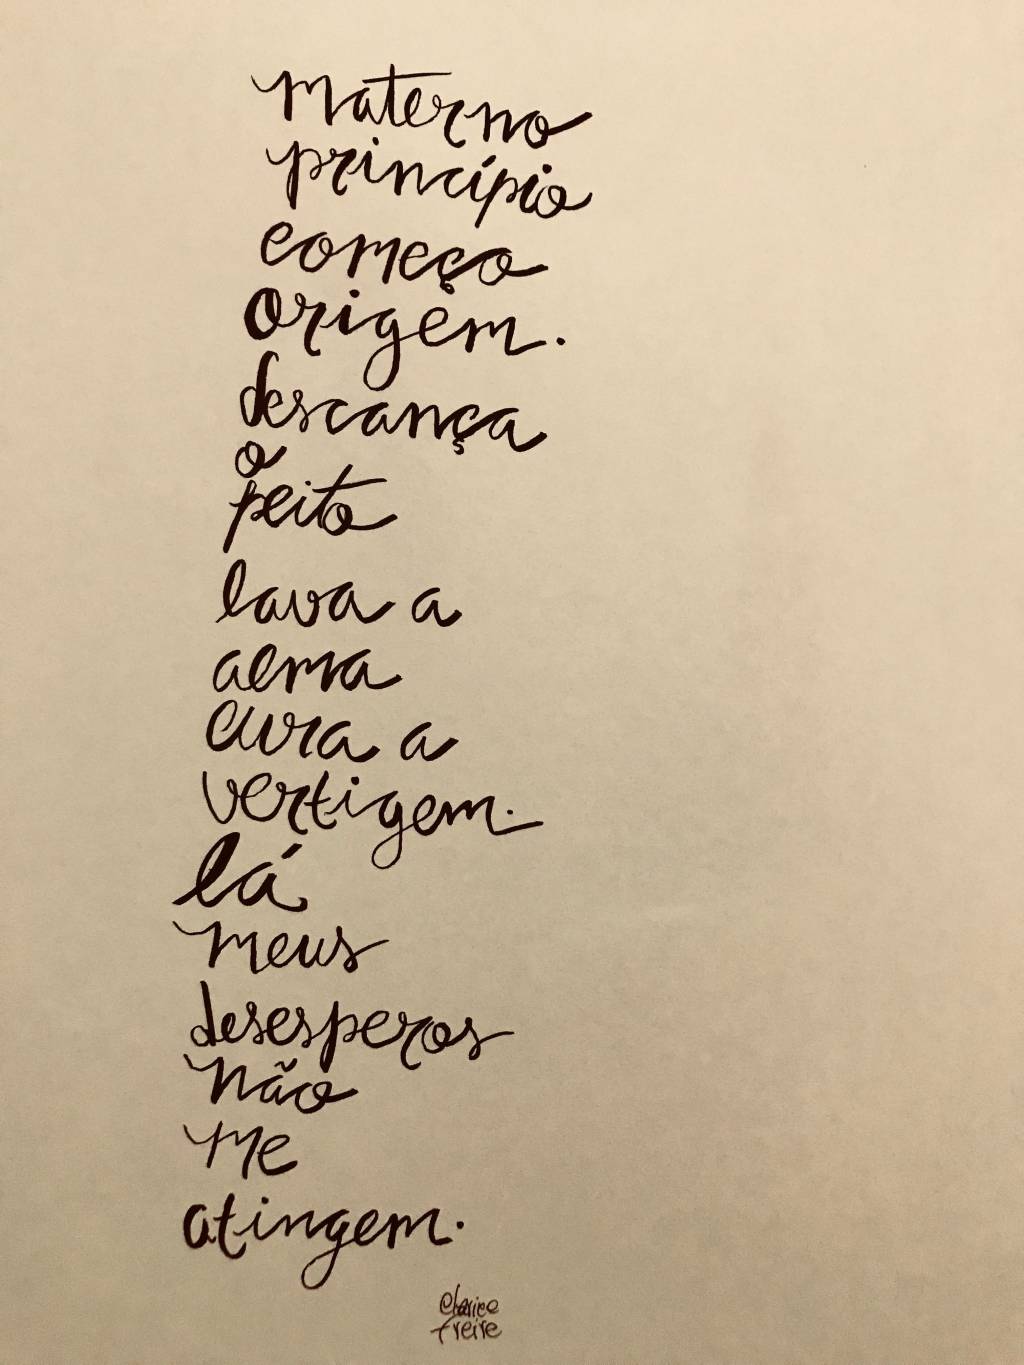 Materno
princípio
começo
origem.
descança
o
peito
lava a
alma
cura a
vertigem.
lá
meus
desesperos
não
me
atingem.
Clarice
Freire